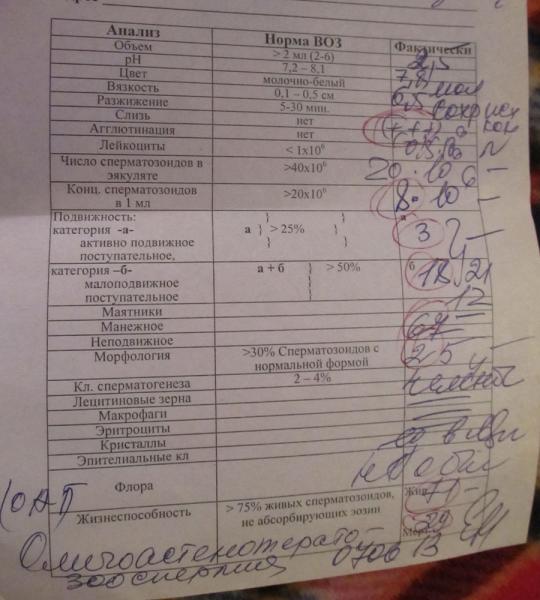 Анализ Норма ВОЗ Фактически
Объем > 2 мл (2-6) 2,5
рН 7,2 – 8,1 7,8
Цвет молочно-белый мол
Вязкость 0,1 – 0,5 см 0,5
Разжижение 5-30 мин.
Слизь нет
Агглютинация нет
Лейкоциты < 1х10⁶
Число сперматозоидов в эякуляте >40х10⁶ 20·10⁶
Конц. сперматозоидов в 1 мл >20х10⁶ 8·10⁶
Подвижность:
категория -а- а } > 25% а 3
активно подвижное
поступательное,
категория –б- а + б } > 50% б 18 21
малоподвижное
поступательное
Маятники 12
Манежное
Неподвижное 67
Морфология >30% Сперматозоидов с нормальной формой 25
Кл. сперматогенеза 2 – 4%
Лецитиновые зерна
Макрофаги
Эритроциты
Кристаллы
Эпителиальные кл
Флора
Жизнеспособность > 75% живых сперматозоидов, не абсорбирующих эозин 71 29
(ОАТ)
Олигоастенотерато-
зооспермия